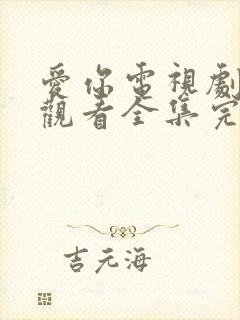 愛你電視劇
觀看全集完
吉元海